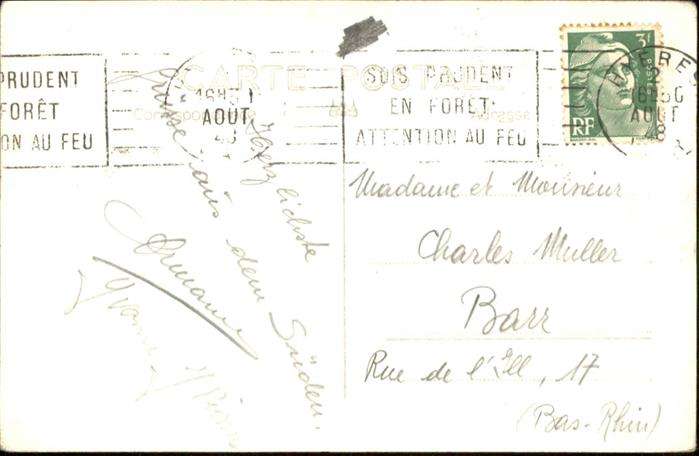 CARTE POSTALE
Correspondance
Adresse
PRUDENT
FORÊT
ON AU FEU
16H30
AOUT
48
SOIS PRUDENT
EN FORÊT
ATTENTION AU FEU
HYERES
16H30
AOUT
3F
RF
Herzlichste
Grüsse aus dem Süden
Armand
Yvonne
Madame et Monsieur
Charles Muller
Barr
Rue de l'Ill, 17
(Bas-Rhin)